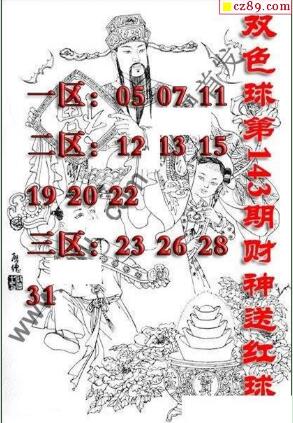 cz89.com
双色球第143期财神送红球
一区：05 07 11
二区：12 13 15
19 20 22
三区：23 26 28
31